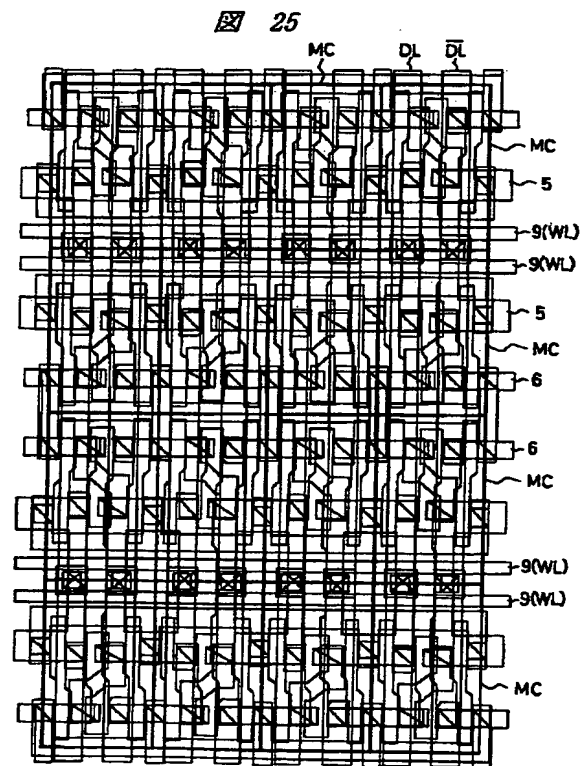 図 25
MC DL D̅L̅
MC
5
9(WL)
9(WL)
5
MC
6
6
MC
9(WL)
9(WL)
MC